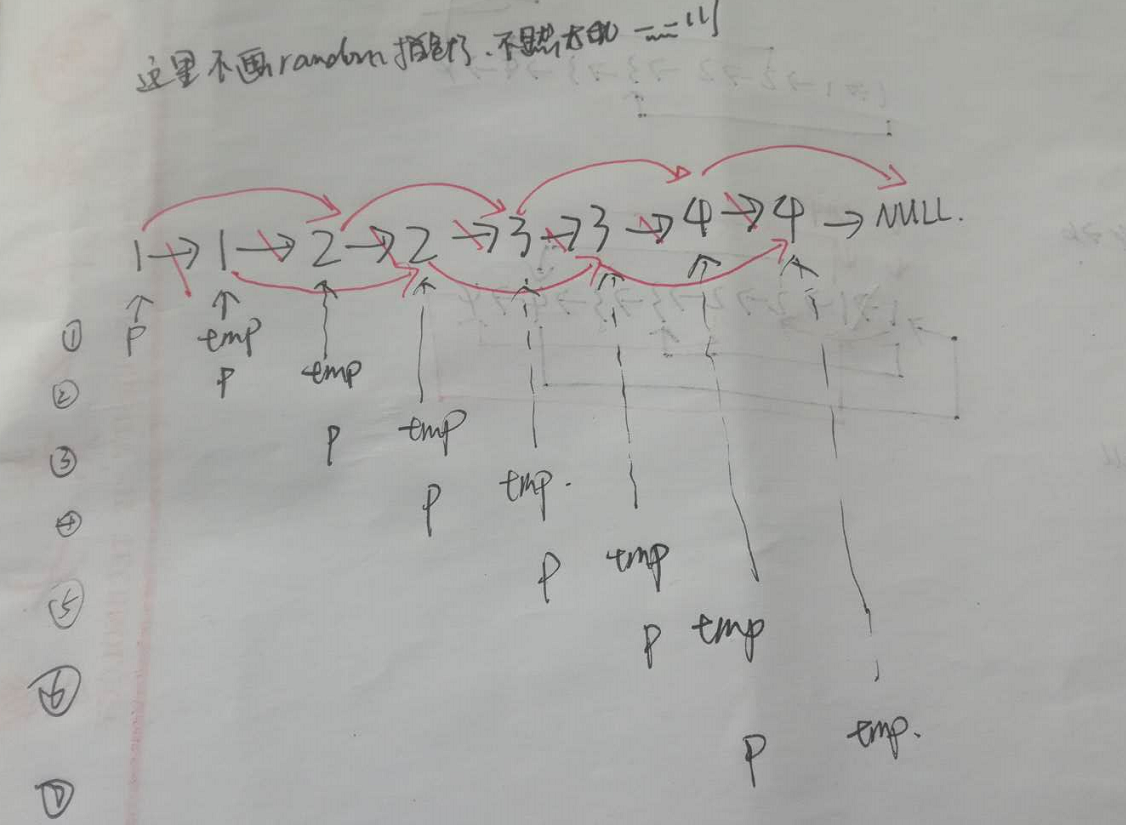 这里不画random指针了.不然太乱 ==''
1 → 1 → 2 → 2 → 3 → 3 → 4 → 4 → NULL.
① P tmp
② P tmp
③ P tmp
④ P tmp.
⑤ P tmp
⑥ P tmp
⑦ P tmp.